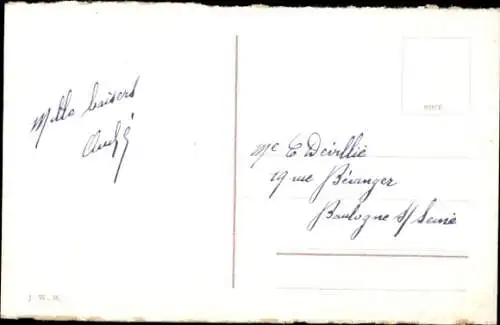 Mille baisers
André
Me E Devillié
19 rue Béranger
Boulogne s/ Seine
J. W. M.